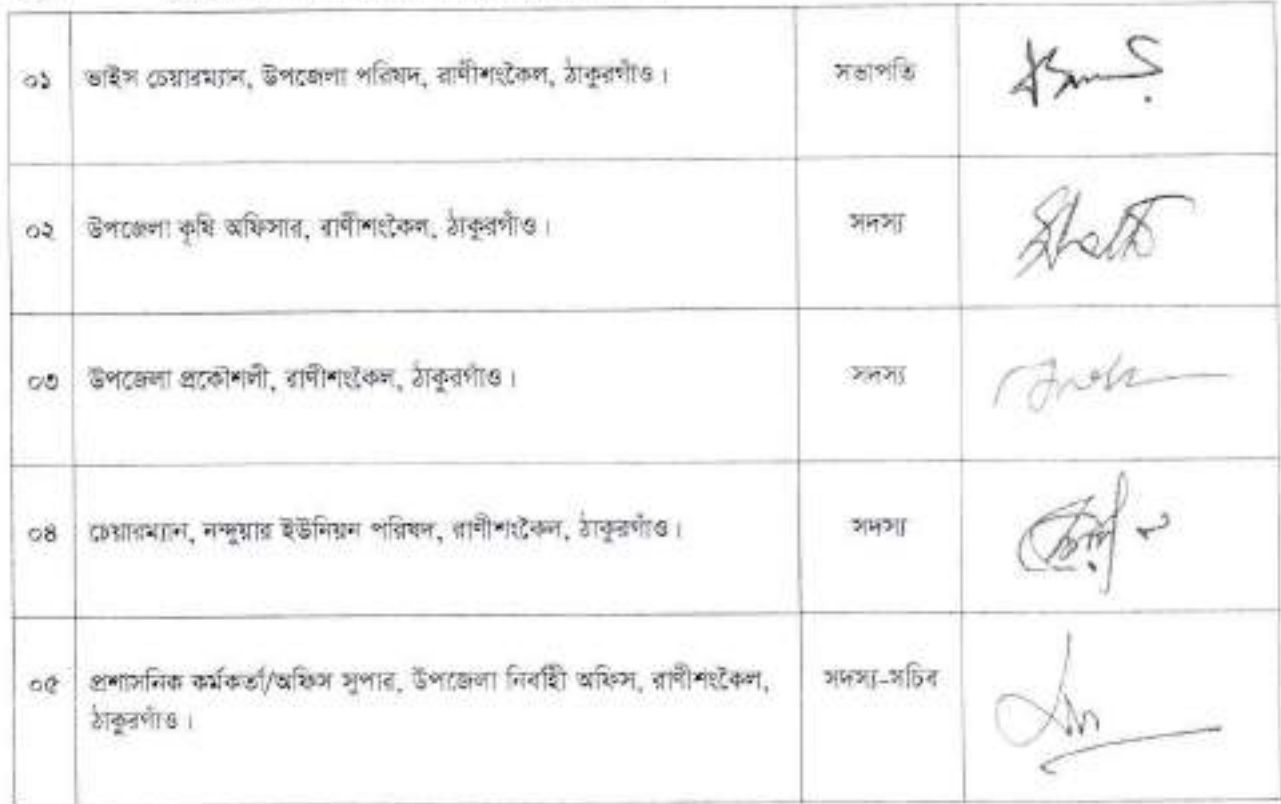 ০১ ভাইস চেয়ারম্যান, উপজেলা পরিষদ, রাণীশংকৈল, ঠাকুরগাঁও। সভাপতি
০২ উপজেলা কৃষি অফিসার, রাণীশংকৈল, ঠাকুরগাঁও। সদস্য
০৩ উপজেলা প্রকৌশলী, রাণীশংকৈল, ঠাকুরগাঁও। সদস্য
০৪ চেয়ারম্যান, নন্দুয়ার ইউনিয়ন পরিষদ, রাণীশংকৈল, ঠাকুরগাঁও। সদস্য
০৫ প্রশাসনিক কর্মকর্তা/অফিস সুপার, উপজেলা নির্বাহী অফিস, রাণীশংকৈল, সদস্য-সচিব
ঠাকুরগাঁও।